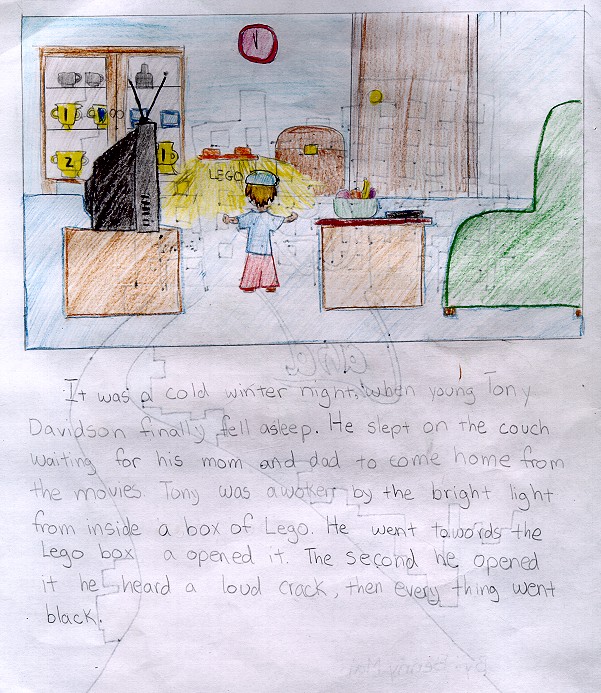 1
2
1
LEGO
It was a cold winter night, when young Tony
Davidson finally fell asleep. He slept on the couch
waiting for his mom and dad to come home from
the movies. Tony was awoken by the bright light
from inside a box of Lego. He went towords the
Lego box a opened it. The second he opened
it he heard a loud crack, then every thing went
black.